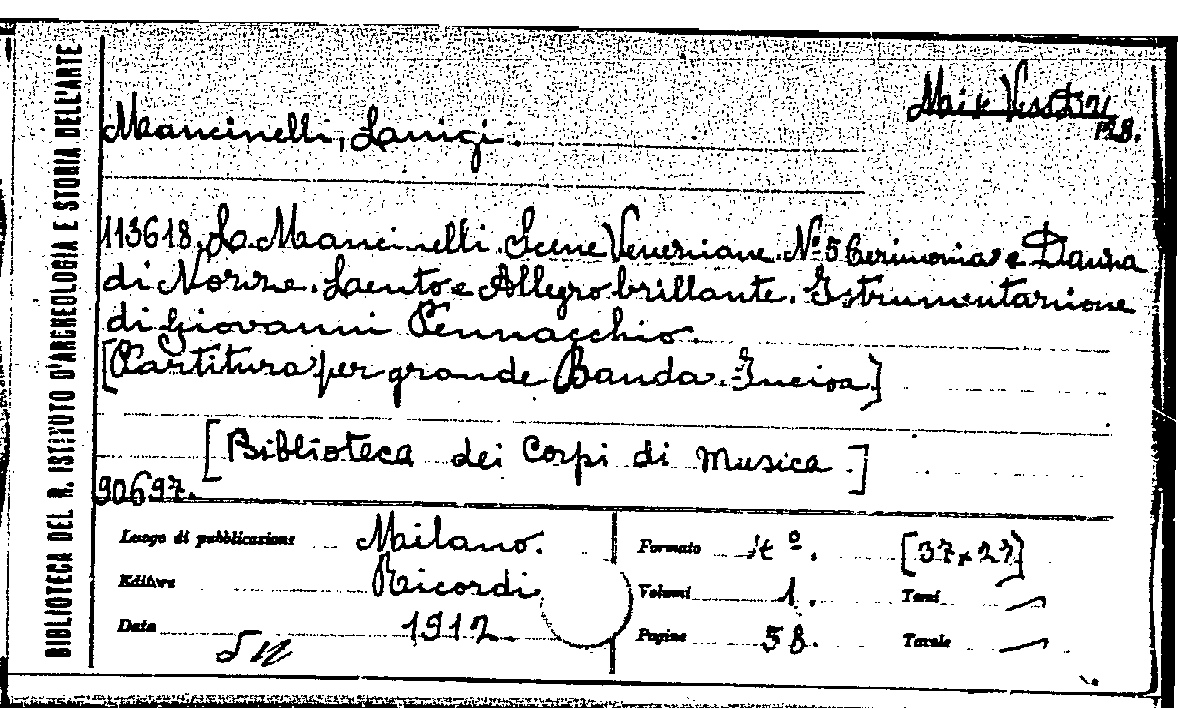 BIBLIOTECA DEL R. ISTITUTO D'ARCHEOLOGIA E STORIA DELL'ARTE
Mancinelli, Luigi.
113618. L. Mancinelli. Scene Veneziane. Nº 5 Cerimonia e Danza
di Nozze. Lento e Allegro brillante. Istrumentazione
di Giovanni Pennacchio.
[Partitura per grande Banda. Incisa]
[Biblioteca dei Corpi di Musica.]
90697.
Luogo di pubblicazione Milano.
Editore Ricordi
Data 1912.
Formato 4º. [37x27]
Volumi 1. Tomi —
Pagine 58. Tavole —